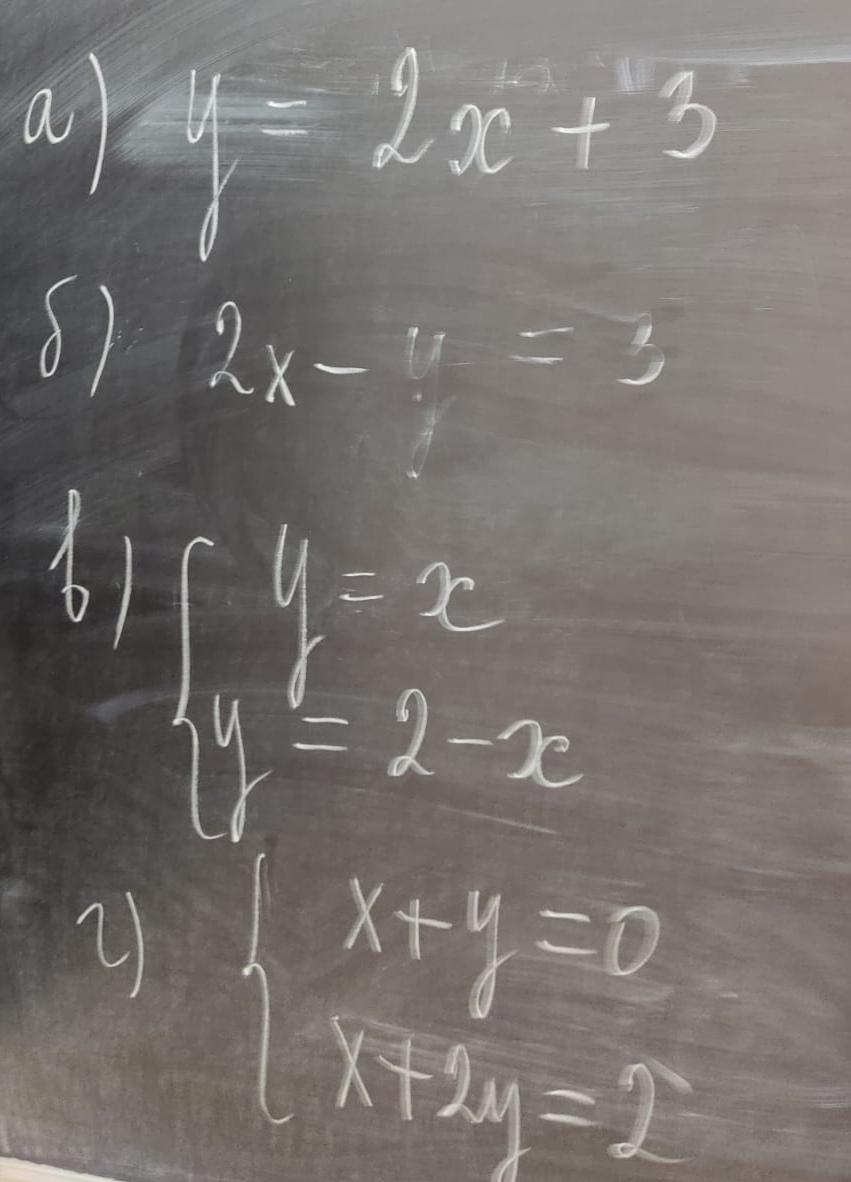 а) y = 2x + 3
б) 2x - y = 3
в) { y = x
y = 2 - x
г) { x + y = 0
x + 2y = 2